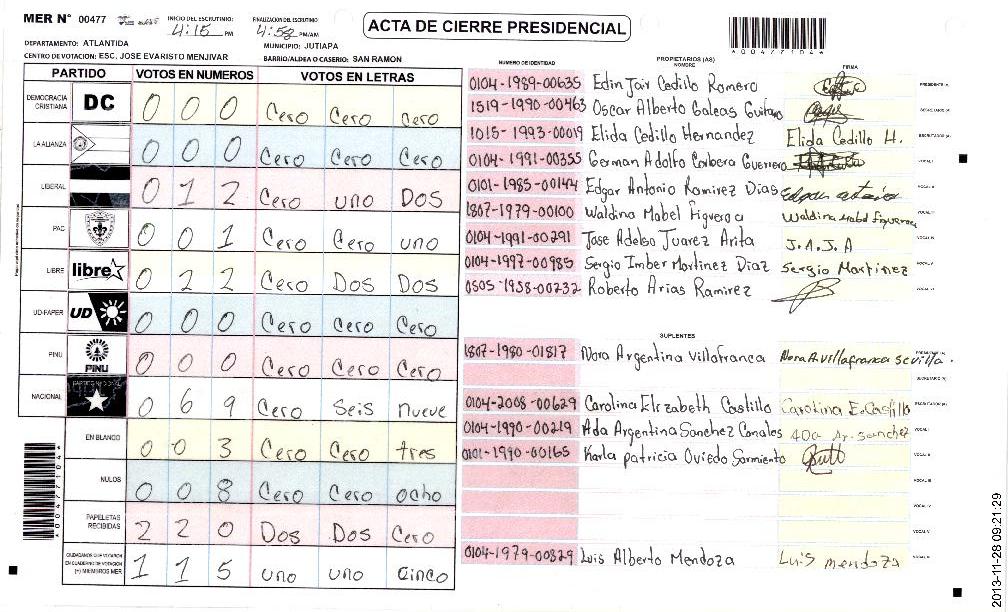 MER N° 00477
INICIO DEL ESCRUTINIO: 4:15 PM
FINALIZACION DEL ESCRUTINIO 4:58 PM/AM
ACTA DE CIERRE PRESIDENCIAL
*00477104*
DEPARTAMENTO: ATLANTIDA
MUNICIPIO: JUTIAPA
CENTRO DE VOTACION: ESC. JOSE EVARISTO MENJIVAR
BARRIO/ALDEA O CASERIO: SAN RAMON
PARTIDO VOTOS EN NUMEROS VOTOS EN LETRAS
DEMOCRACIA CRISTIANA DC 0 0 0 Cero Cero Cero
LA ALIANZA 0 0 0 Cero Cero Cero
LIBERAL 0 1 2 Cero uno Dos
PAC 0 0 1 Cero Cero uno
LIBRE libre 0 2 2 Cero Dos Dos
UD-FAPER UD 0 0 0 Cero Cero Cero
PINU PINU 0 0 0 Cero Cero Cero
NACIONAL PARTIDO NACIONAL 0 6 9 Cero Seis nueve
EN BLANCO 0 0 3 Cero Cero tres
NULOS 0 0 8 Cero Cero ocho
PAPELETAS RECIBIDAS 2 2 0 Dos Dos Cero
CIUDADANOS QUE VOTARON EN CUADERNO DE VOTACION (+) MIEMBROS MER 1 1 5 uno uno cinco
*00477104*
NUMERO DE IDENTIDAD PROPIETARIOS (AS) NOMBRE FIRMA
0104-1989-00635 Edin Jair Cedillo Romero PRESIDENTE (A)
1519-1990-00463 Oscar Alberto Galeas Guitano SECRETARIO (A)
1015-1993-00019 Elida Cedillo Hernandez Elida Cedillo H. ESCRUTADOR (A)
0104-1991-00355 German Adolfo Corbera Guerrero VOCAL I
0101-1985-00144 Edgar Antonio Ramirez Dias VOCAL II
1807-1979-00100 Waldina Mabel Figueroa Waldina Mabel Figueroa VOCAL III
0104-1991-00291 Jose Adelso Juarez Arita J.A.J.A VOCAL IV
0104-1997-00985 Sergio Imber Martinez Diaz Sergio Martinez VOCAL V
0505-1958-00232 Roberto Arias Ramirez VOCAL VI
SUPLENTES
1807-1980-01817 Nora Argentina Villafranca Nora A. Villafranca Sevilla. PRESIDENTE (A)
SECRETARIO (A)
0104-2008-00629 Carolina Elizabeth Castillo Carolina E. Castillo ESCRUTADOR (A)
0104-1990-00219 Ada Argentina Sanchez Canales VOCAL I
0101-1990-00165 Karla patricia Oviedo Sarmiento VOCAL II
VOCAL III
VOCAL IV
VOCAL V
0104-1979-00829 Luis Alberto Mendoza Luis mendoza VOCAL VI
2013-11-28 09:21:29